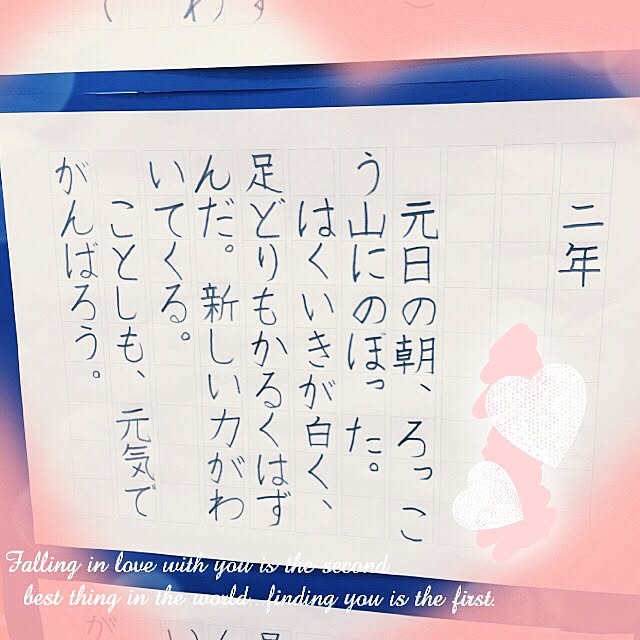 わす
二年
元日の朝、ろっこ
う山にのぼった。
はくいきが白く、
足どりもかるくはず
んだ。新しい力がわ
いてくる。
ことしも、元気で
がんばろう。
Falling in love with you is the second
best thing in the world...finding you is the first.